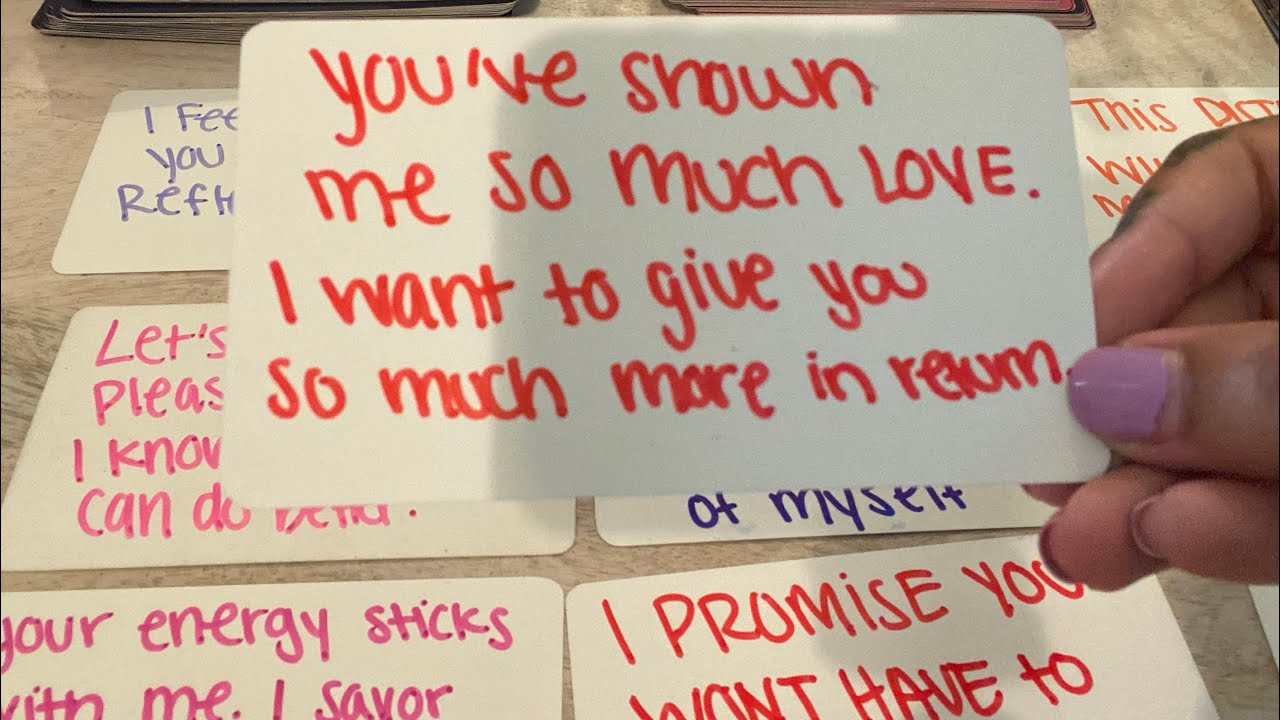 you've shown
me so much LOVE.
I want to give you
so much more in return.
I Fee
you
Refl
This
Let's
pleas
I know
can do
of myself
your energy sticks
with me. I savor
I PROMISE YOU
WONT HAVE to